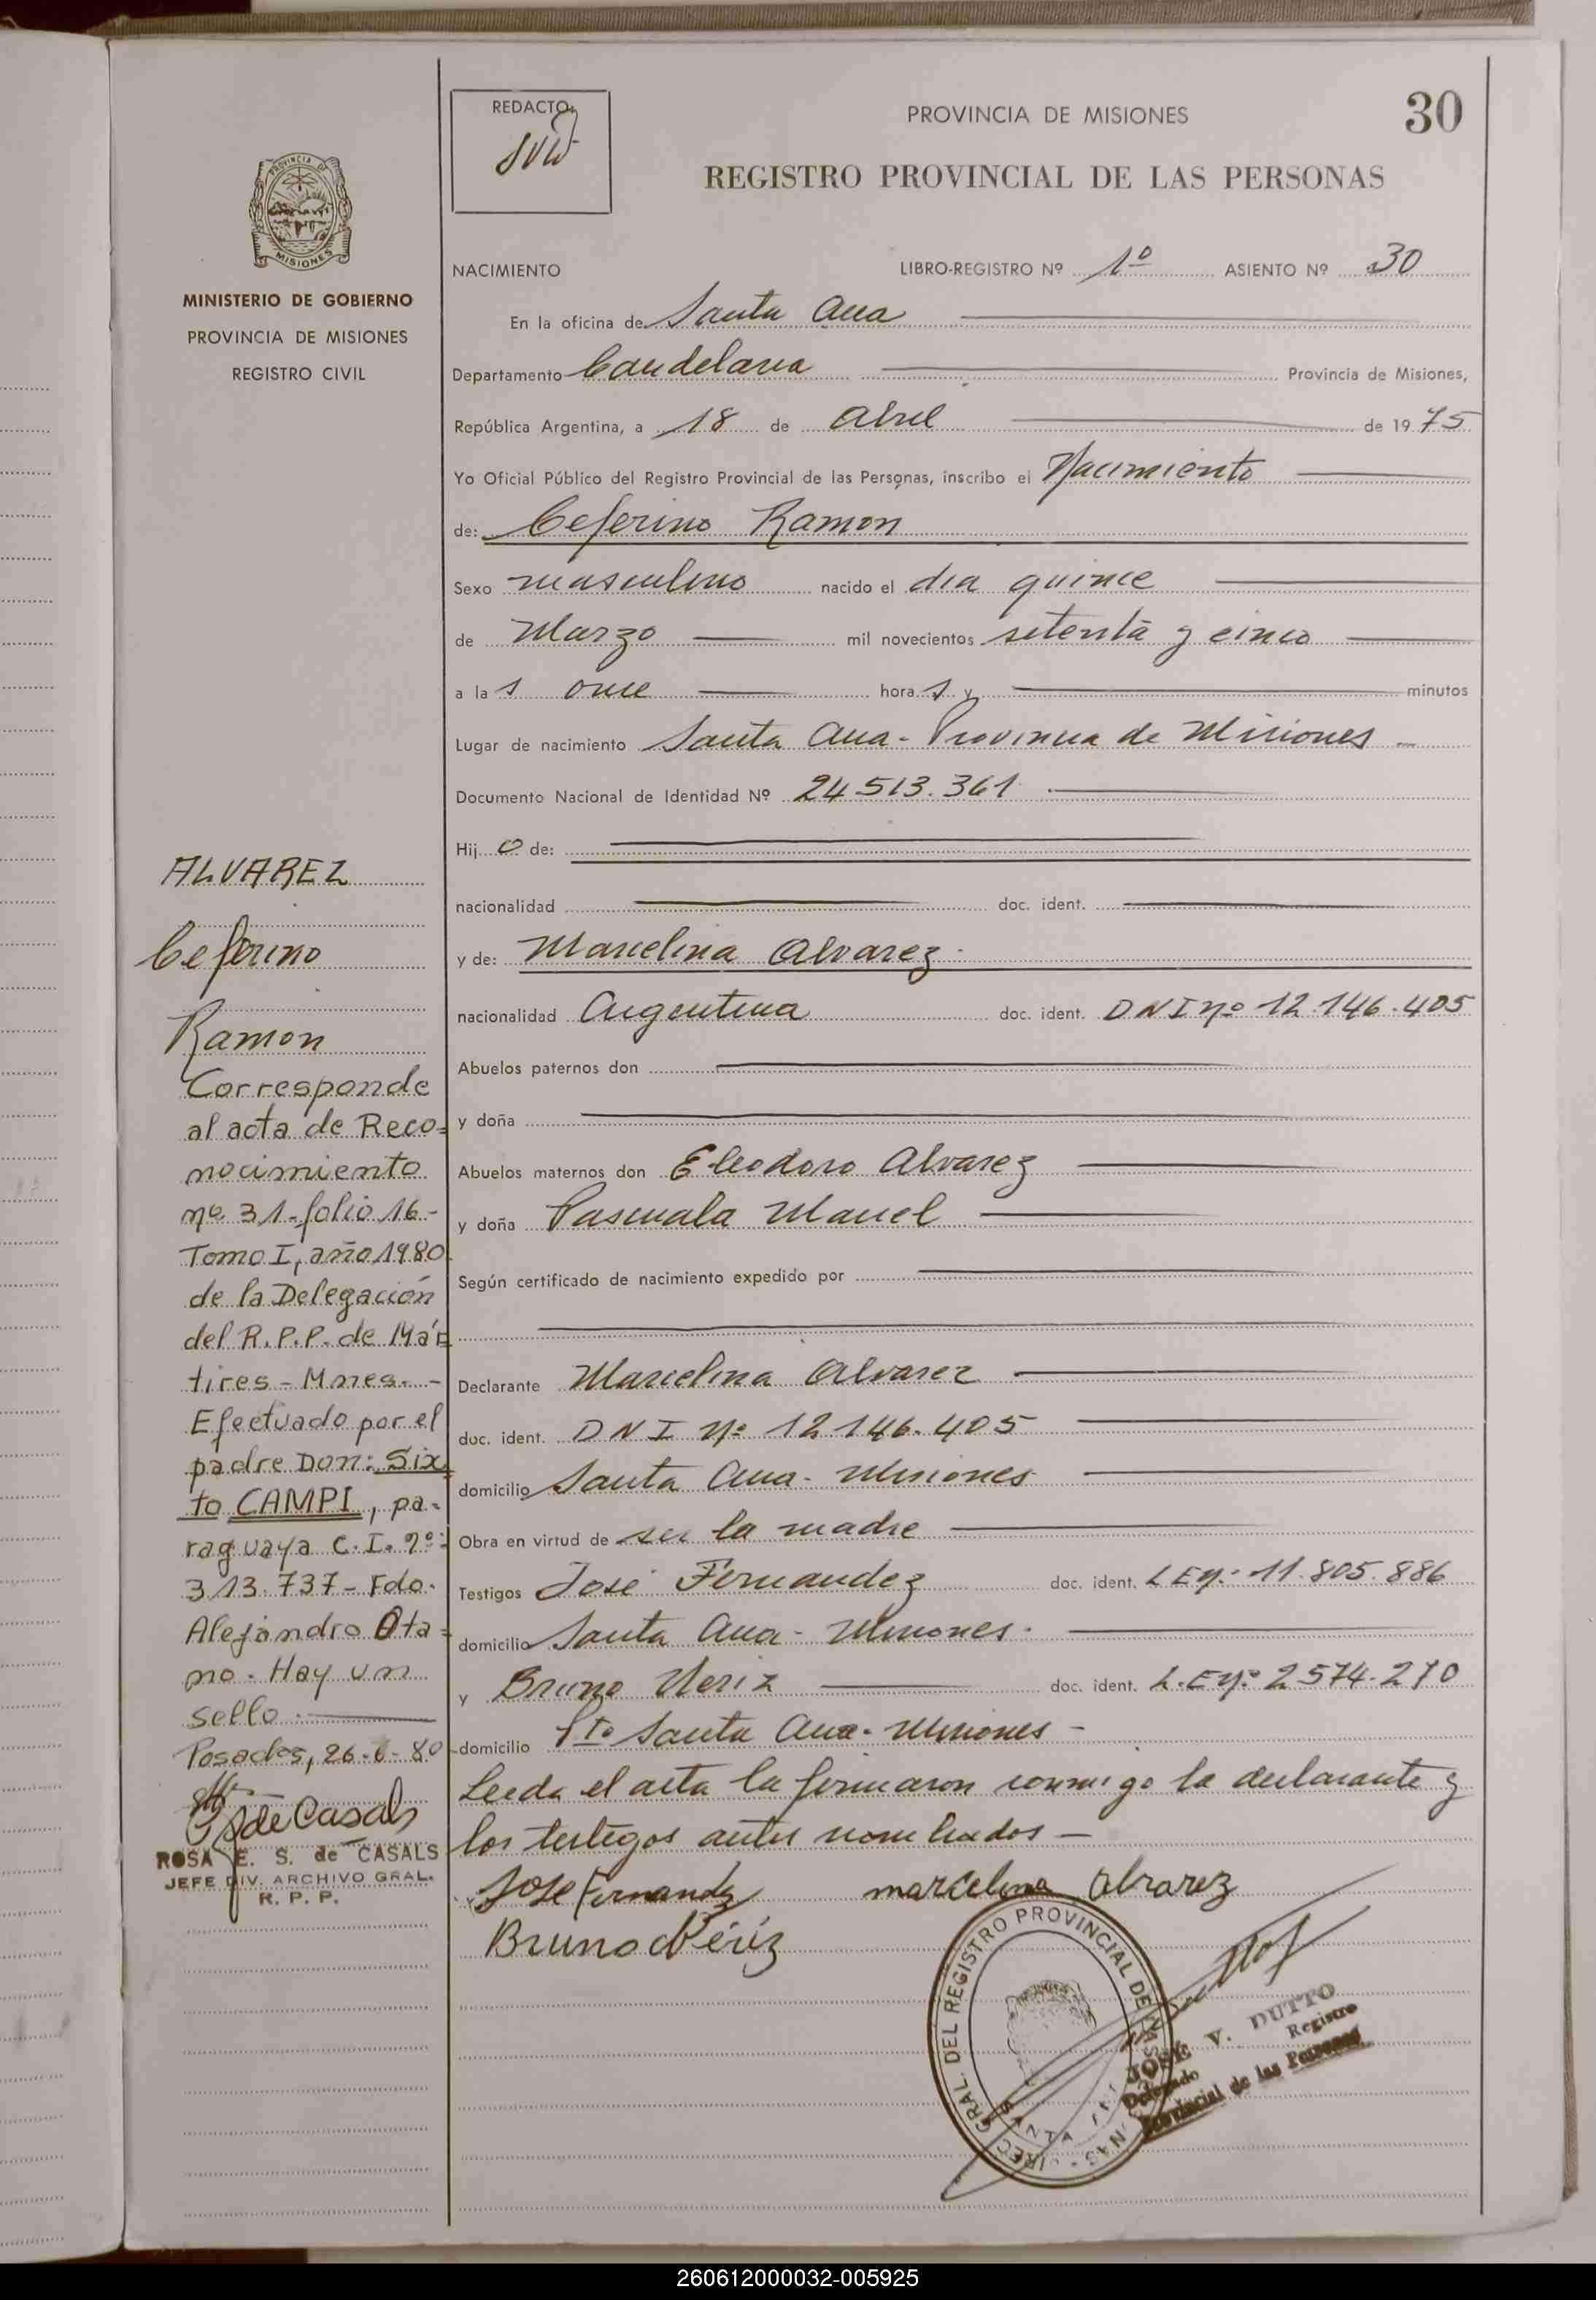 REDACTO:
PROVINCIA DE MISIONES
30
REGISTRO PROVINCIAL DE LAS PERSONAS
PROVINCIA DE
MISIONES
MINISTERIO DE GOBIERNO
PROVINCIA DE MISIONES
REGISTRO CIVIL
NACIMIENTO LIBRO-REGISTRO Nº 1º ASIENTO Nº 30
En la oficina de Santa Ana
Departamento Candelaria Provincia de Misiones,
República Argentina, a 18 de Abril de 1975
Yo Oficial Público del Registro Provincial de las Personas, inscribo el Nacimiento
de: Ceferino Ramon
Sexo masculino nacido el dia quince
de Marzo mil novecientos setenta y cinco
a las once horas y minutos
Lugar de nacimiento Santa Ana - Provincia de Misiones
Documento Nacional de Identidad Nº 24.513.361
Hijo de:
nacionalidad doc. ident.
y de: Marcelina Alvarez
nacionalidad Argentina doc. ident. DNI nº 12.146.405
Abuelos paternos don
y doña
Abuelos maternos don Eleodoro Alvarez
y doña Pascuala
Según certificado de nacimiento expedido por
Declarante Marcelina Alvarez
doc. ident. DNI Nº 12.146.405
domicilio Santa Ana - Misiones
Obra en virtud de ser la madre
Testigos José Fernandez doc. ident. L E nº 11.805.886
domicilio Santa Ana - Misiones.
y Bruno doc. ident. L.E nº 2574.270
domicilio Pto Santa Ana - Misiones -
Leeda el acta la firmaron conmigo la declarante y
los testigos antes nombrados -
Jose Fernandz marcelina Alvarez
Bruno
ALVAREZ
Ceferino
Ramon
Corresponde
al acta de Reco=
nocimiento
nº 31-folio 16-
Tomo I, año 1980
de la Delegación
del R.P.P. de Már=
tires - Mnes. -
Efectuado por el
padre Don: Six
to CAMPI, pa-
raguaya C.I. nº:
313.737 - Fdo.
Alejandro Ota=
ño. Hay un
sello.
Posadas, 26-6-80
de Casals
ROSA E. S. de CASALS
JEFE DIV. ARCHIVO GRAL.
R. P. P.
GRAL. DEL REGISTRO PROVINCIAL DE LAS
SANTA
JOSE V. DUTTO
Delegado Registro
Provincial de las Personas
260612000032-005925